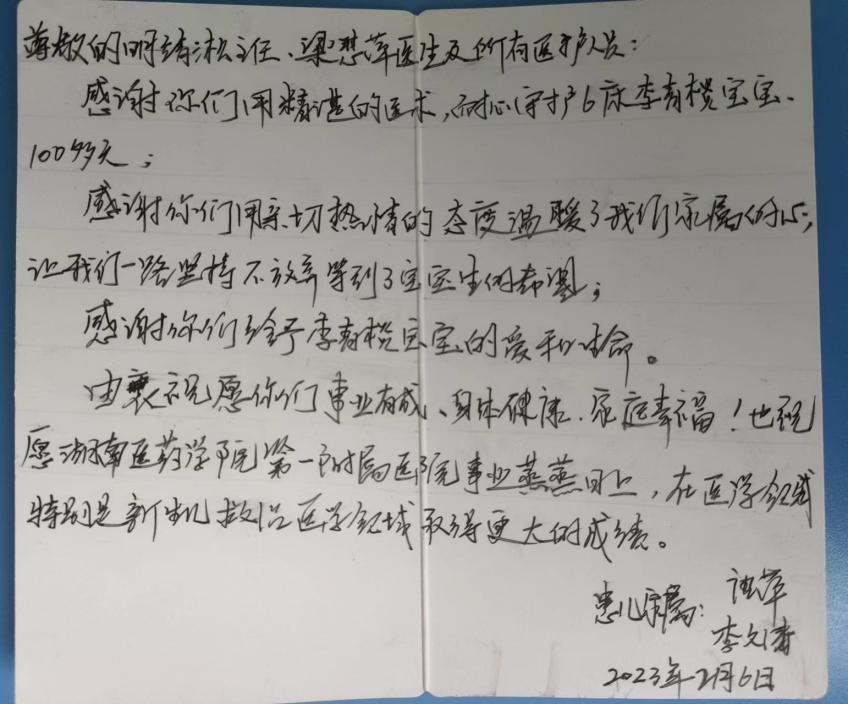 尊敬的明清淞主任、梁慧萍医生及所有医护人员：
感谢你们用精湛的医术，耐心守护6床李青橙宝宝、
100多天；
感谢你们用亲切热情的态度温暖了我们家属的心，
让我们一路坚持不放弃等到了宝宝生的希望；
感谢你们给予李青橙宝宝的爱和生命。
由衷祝愿你们事业有成、身体健康、家庭幸福！也祝
愿湖南医药学院第一附属医院事业蒸蒸日上，在医学领域
特别是新生儿救治医学领域取得更大的成绩。
患儿家属：
李
2023年2月6日